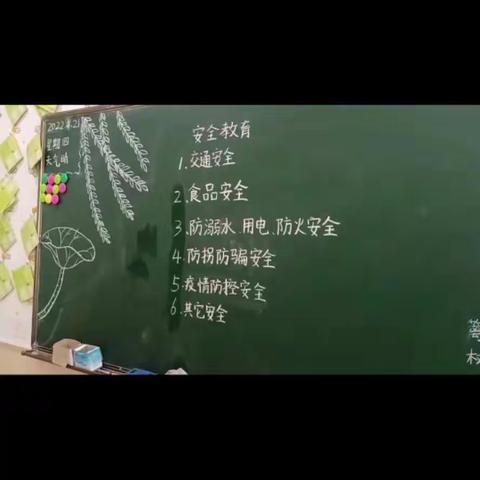 2022.4.21
星期四
天气晴
安全教育
1.交通安全
2.食品安全
3、防溺水、用电、防火安全
4.防拐防骗安全
5.疫情防控安全
6.其它安全